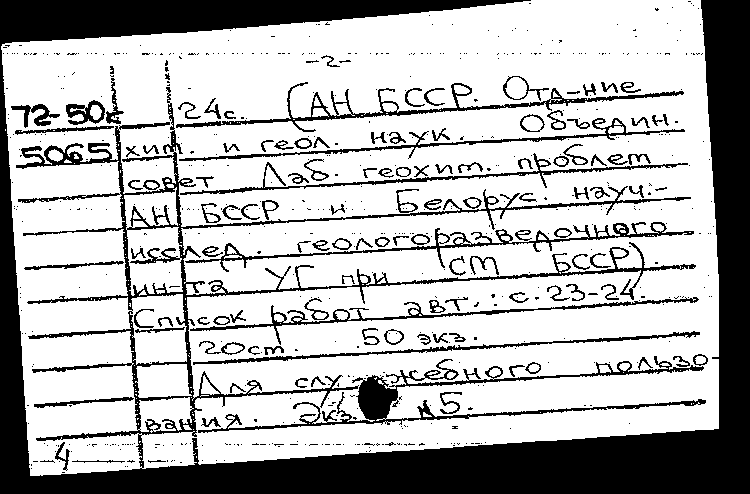 -2-
72-50к 24с. (АН БССР. Отд-ние
5065 хим. и геол. наук. Объедин.
совет Лаб. геохим. проблем
АН БССР и Белорус. науч.-
исслед. геологоразведочного
ин-та УГ при СМ БССР).
Список работ авт.: с. 23-24.
20ст. 50 экз.
Для служебного пользо-
вания. Экз. №5.
4